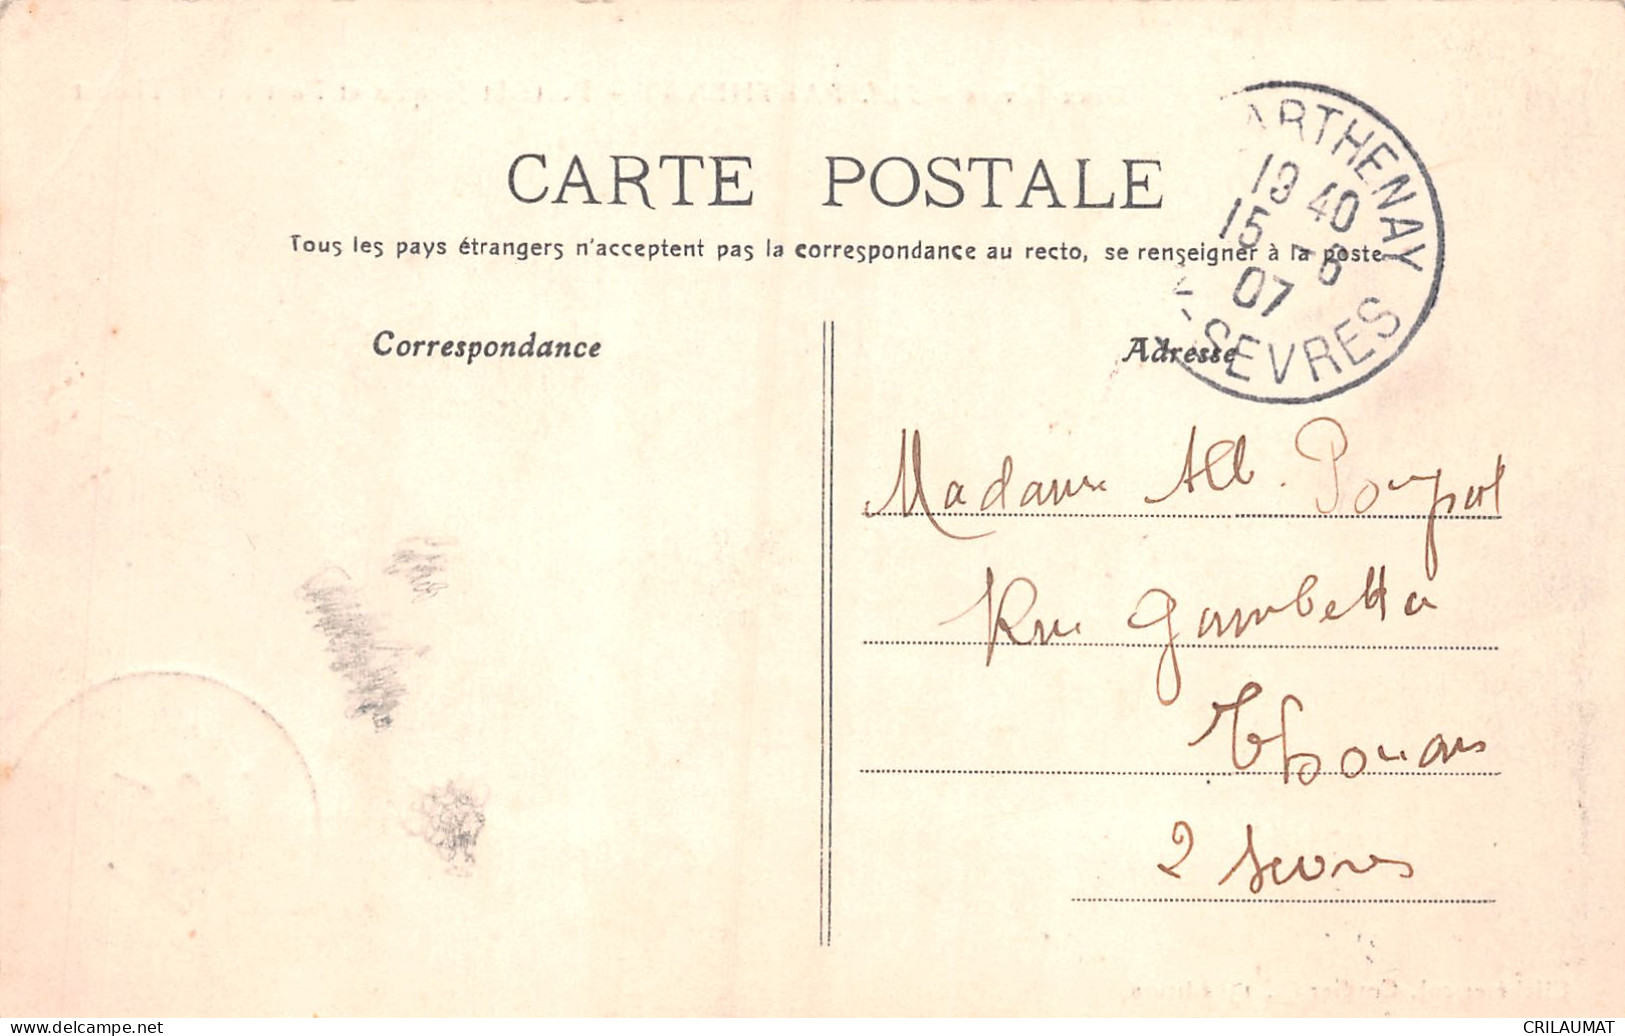 CARTE POSTALE
Tous les pays étrangers n'acceptent pas la correspondance au recto, se renseigner à la poste
ARTHENAY
19 40
15 -6
07
SEVRES
Correspondance
Adresse
Madame Alb.
Rue Gambetta
Thouars
2 Sevres
CRILAUMAT